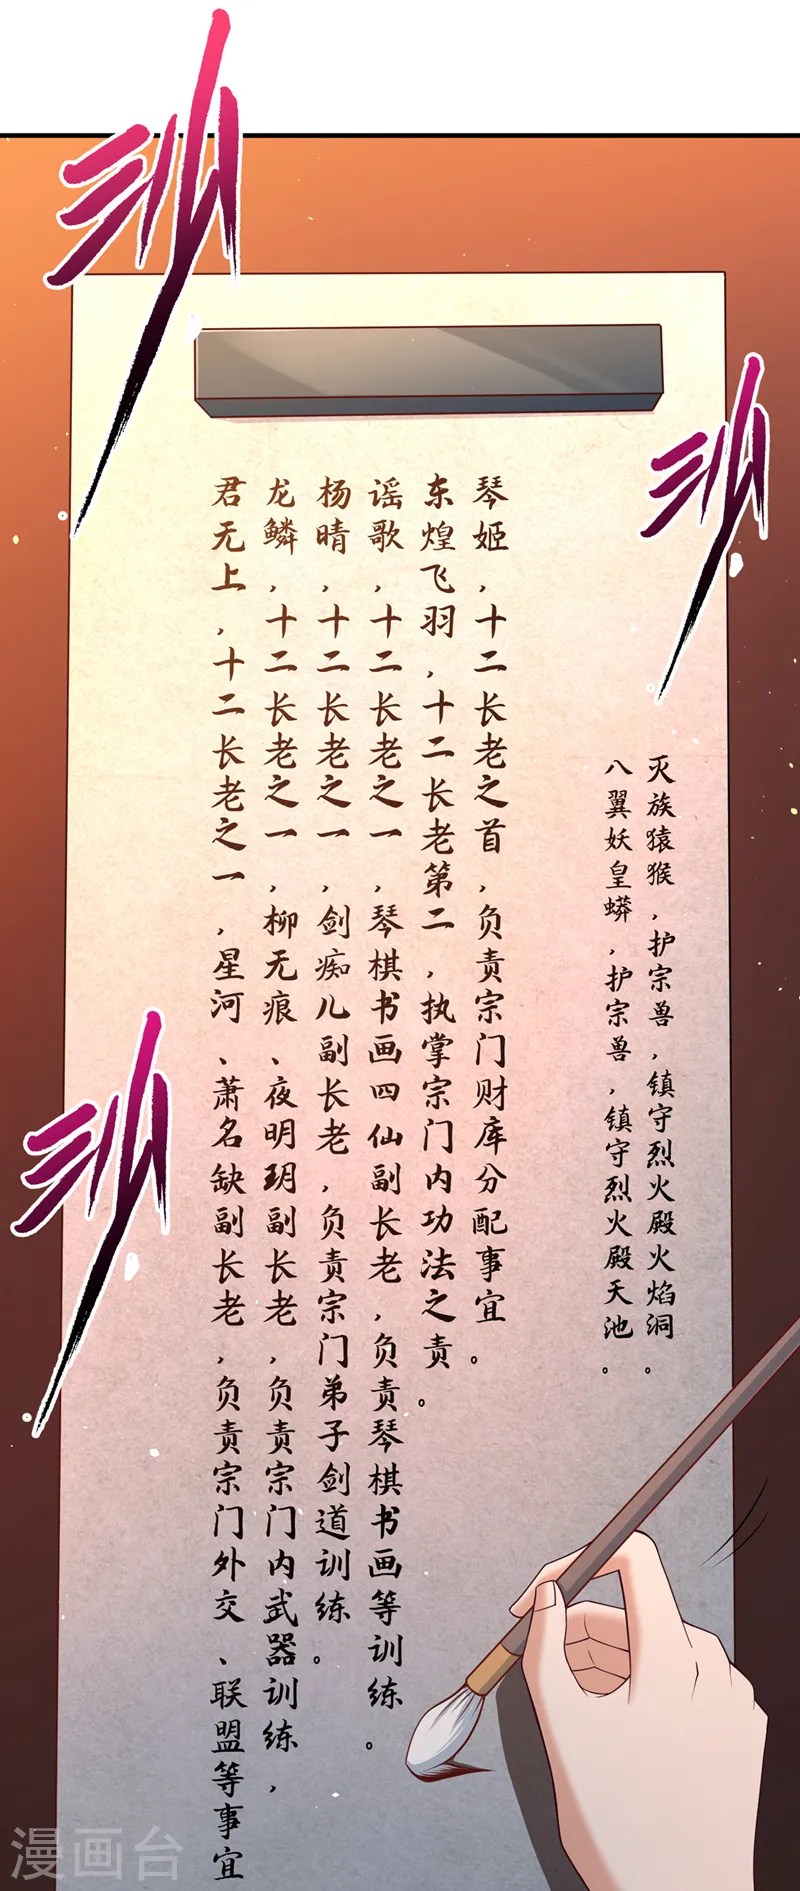 沙
沙
沙
灭族猿猴，护宗兽，镇守烈火殿火焰洞。
八翼妖皇蟒，护宗兽，镇守烈火殿天池。
琴姬，十二长老之首，负责宗门财库分配事宜。
东煌飞羽，十二长老第二，执掌宗门内功法之责。
谣歌，十二长老之一，琴棋书画四仙副长老，负责琴棋书画等训练。
杨晴，十二长老之一，剑痴儿副长老，负责宗门弟子剑道训练。
龙鳞，十二长老之一，柳无痕、夜明玥副长老，负责宗门内武器训练，
君无上，十二长老之一，星河、萧名缺副长老，负责宗门外交、联盟等事宜
漫画台